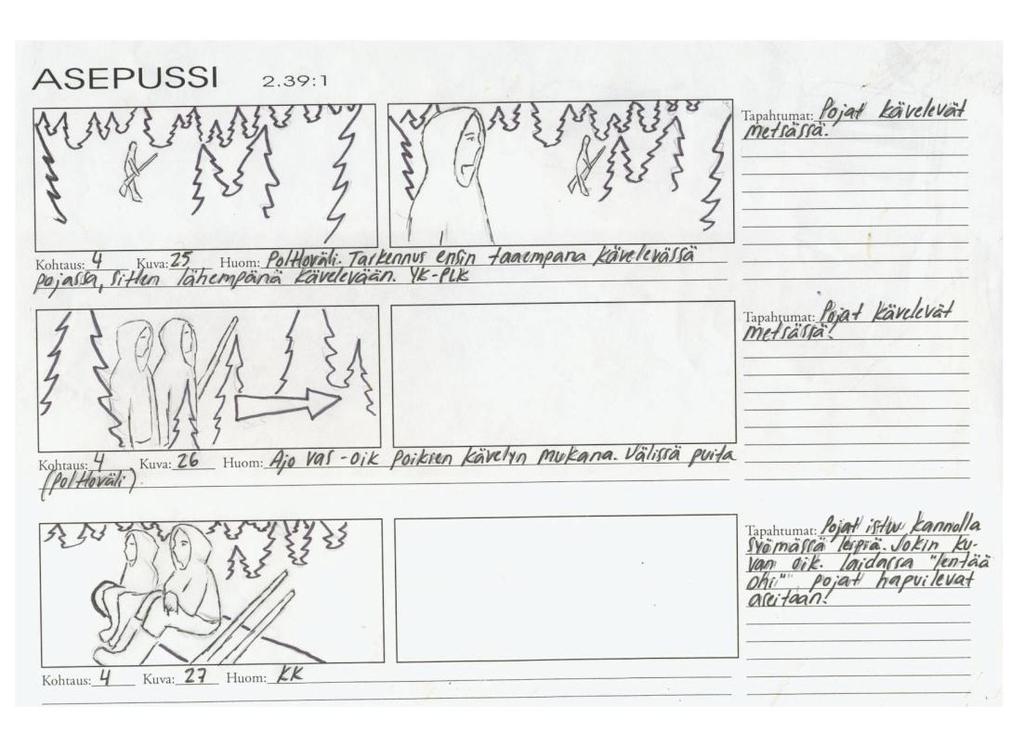 ASEPUSSI 2.39:1
Tapahtumat: Pojat kävelevät
metsässä.
Kohtaus: 4 Kuva: 25 Huom: Polttoväli. Tarkennus ensin taaempana kävelevässä
pojassa, sitten lähempänä kävelevään. YK-PLK
Tapahtumat: Pojat kävelevät
metsässä.
Kohtaus: 4 Kuva: 26 Huom: Ajo vas-oik poikien kävelyn mukana. Välissä puita
(Polttoväli).
Tapahtumat: Pojat istuu kannolla
syömässä leipiä. Jokin ku-
van oik. laidassa "lentää
ohi" pojat hapuilevat
aseitaan.
Kohtaus: 4 Kuva: 27 Huom: KK